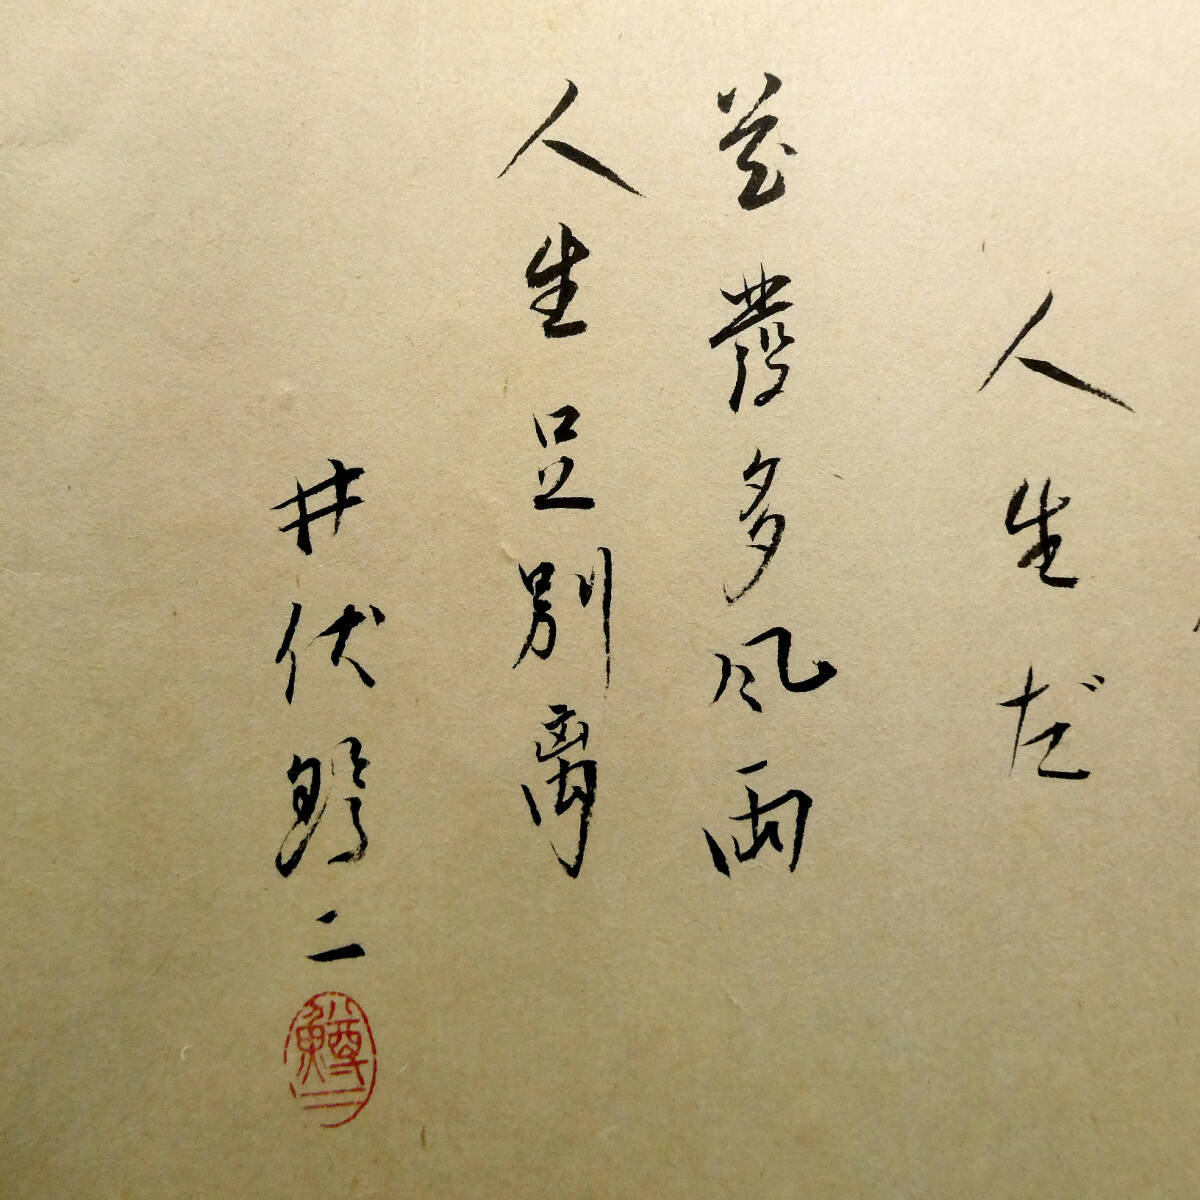 人生だ
花發多風雨
人生足別離
井伏鱒二
鱒二